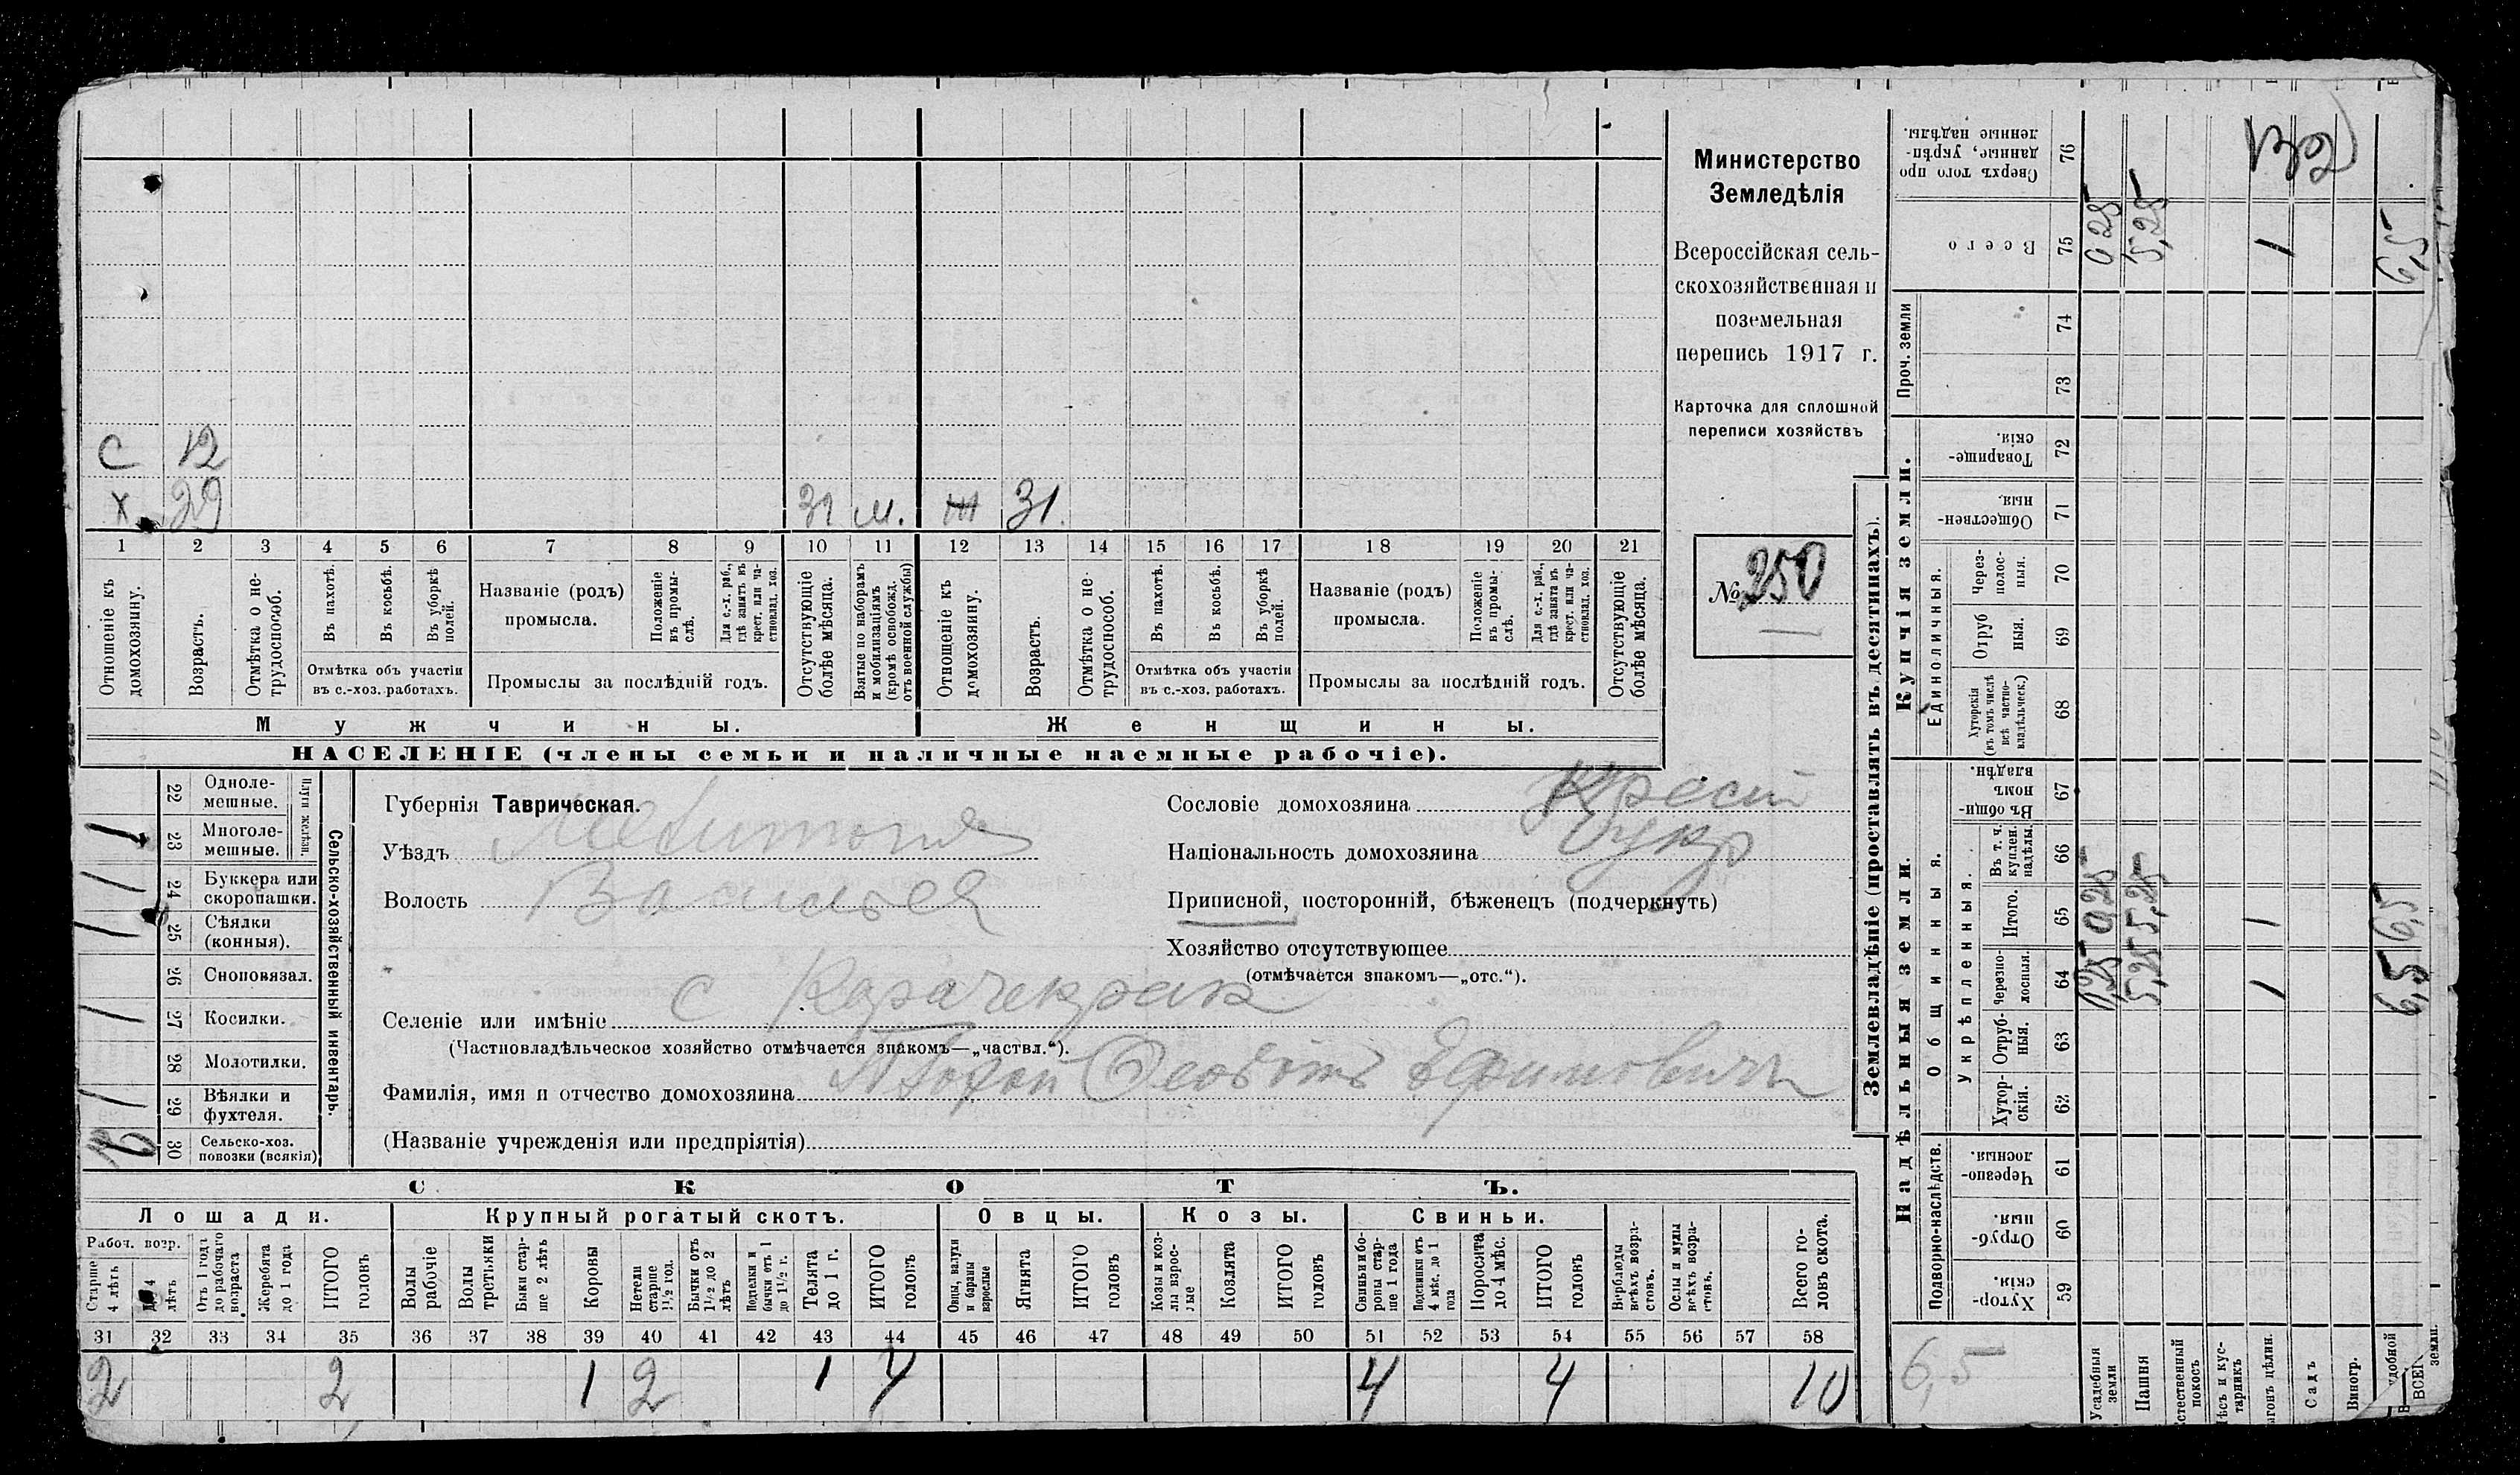 Министерство
Земледѣлія
Всероссійская сель-
скохозяйственная и
поземельная
перепись 1917 г.
Карточка для сплошной
переписи хозяйствъ
№ 250
С 12
Х 39 31 м. Ж 31
1 2 3 4 5 6 7 8 9 10 11 12 13 14 15 16 17 18 19 20 21
Отношеніе къ домохозяину.
Возрастъ.
Отмѣтка о не-трудоспособ.
Въ пахотѣ.
Въ косьбѣ.
Въ уборкѣ полей.
Отмѣтка объ участіи
въ с.-хоз. работахъ.
Названіе (родъ)
промысла.
Положеніе въ промы-слѣ.
Для с.-х. раб., гдѣ занятъ въ крест. или ча-стновлад. хоз.
Промыслы за послѣдній годъ.
Отсутствующіе болѣе мѣсяца.
Взятые по наборамъ и мобилизаціямъ (кромѣ освобожд. отъ военной службы)
Отношеніе къ домохозяину.
Возрастъ.
Отмѣтка о не-трудоспособ.
Въ пахотѣ.
Въ косьбѣ.
Въ уборкѣ полей.
Отмѣтка объ участіи
въ с.-хоз. работахъ.
Названіе (родъ)
промысла.
Положеніе въ промы-слѣ.
Для с.-х. раб., гдѣ занята въ крест. или ча-стновлад. хоз.
Промыслы за послѣдній годъ.
Отсутствующіе болѣе мѣсяца.
Мужчины.
Женщины.
НАСЕЛЕНІЕ (члены семьи и наличные наемные рабочіе).
Сельско-хозяйственный инвентарь.
Плуги желѣзн.
22 Одноле-мешные.
1 23 Многоле-мешные.
1 24 Буккера или скоропашки.
1 25 Сѣялки (конныя).
26 Сноповязал.
1 27 Косилки.
28 Молотилки.
1 29 Вѣялки и фухтеля.
30 Сельско-хоз. повозки (всякія)
Губернія Таврическая.
Уѣздъ Мелитопол
Волость Васильев
Сословіе домохозяина Крест
Національность домохозяина укр
Приписной, посторонній, бѣженецъ (подчеркнуть)
Хозяйство отсутствующее
(отмѣчается знакомъ—„отс.“).
Селеніе или имѣніе с Карачекрак
(Частновладѣльческое хозяйство отмѣчается знакомъ—„частвл.“).
Фамилія, имя и отчество домохозяина Ефимовичъ
(Названіе учрежденія или предпріятія)
СКОТЪ.
Лошади.
Крупный рогатый скотъ.
Овцы.
Козы.
Свиньи.
Рабоч. возр.
Старше 4 лѣтъ
До 4 лѣтъ
Отъ 1 года до рабочаго возраста
Жеребята до 1 года
ИТОГО головъ
Волы рабочіе
Волы третьяки
Быки стар-ше 2 лѣтъ
Коровы
Нетели старше 1½ год.
Бычки отъ 1½ до 2 лѣтъ
Подтелки и бычки отъ 1 до 1½ г.
Телята до 1 г.
ИТОГО головъ
Овцы, валухи и бараны взрослые
Ягнята
ИТОГО головъ
Козы и коз-лы взрос-лые
Козлята
ИТОГО головъ
Свиньи и бо-ровы стар-ше 1 года
Подсвинки отъ 4 мѣс. до 1 года
Поросята до 4 мѣс.
ИТОГО головъ
Верблюды всѣхъ возра-стовъ.
Ослы и мулы всѣхъ возра-стовъ.
Всего го-ловъ скота.
31 32 33 34 35 36 37 38 39 40 41 42 43 44 45 46 47 48 49 50 51 52 53 54 55 56 57 58
2 2 1 2 1 4 4 4 10
Землевладѣніе (проставлять въ десятинахъ).
Купчія земли.
Надѣльныя земли.
Сверхъ того про-данные, укрѣп-ленные надѣлы. 76
Всего 75 0,25 5,25 1 6,5
Проч. земли
74
73
Товарище-скія. 72
Обществен-ныя. 71
Единоличныя.
Через-полос-ныя. 70
Отруб-ныя. 69
Хуторскія (въ томъ числѣ всѣ частно-владѣльческ.) 68
Въ общи-номъ владѣн. 67
Общинныя.
Укрѣпленныя.
Въ т. ч. куплен. надѣлы. 66
Итого. 65 0,25 5,25 1 6,5
Черезпо-лосныя. 64 0,25 5,25 1 6,5
Отруб-ныя. 63
Хутор-скія. 62
Подворно-наслѣдств.
Черезпо-лосныя. 61
Отруб-ныя. 60
Хутор-скія. 59
6,5
Усадебныя земли
Пашня
Естественный покосъ
Лѣсъ и кус-тарникъ
Выгонъ цѣлин.
Садъ
Виногр.
удобной земли.
ВСЕГ